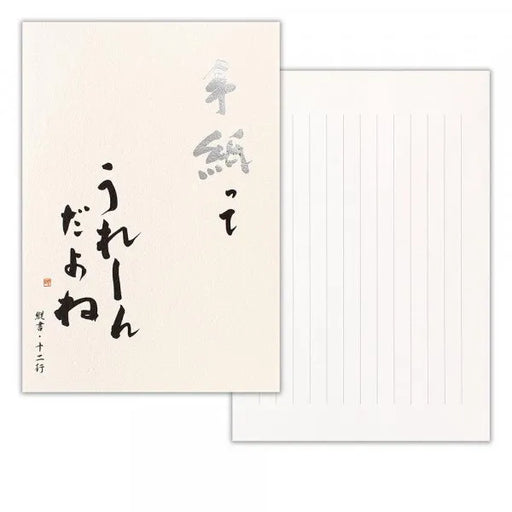 手紙って
うれーん
だよね
縦書・十二行